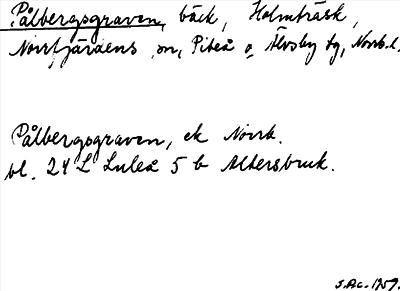 Pålbergsgraven, bäck, Holmträsk,
Norrfjärdens sn, Piteå o. Älvsby tg, Norrb. l.
Pålbergsgraven, ek Norrb.
bl. 24 L Luleå 5 b Altersbruk.
S.Ac. 1959.